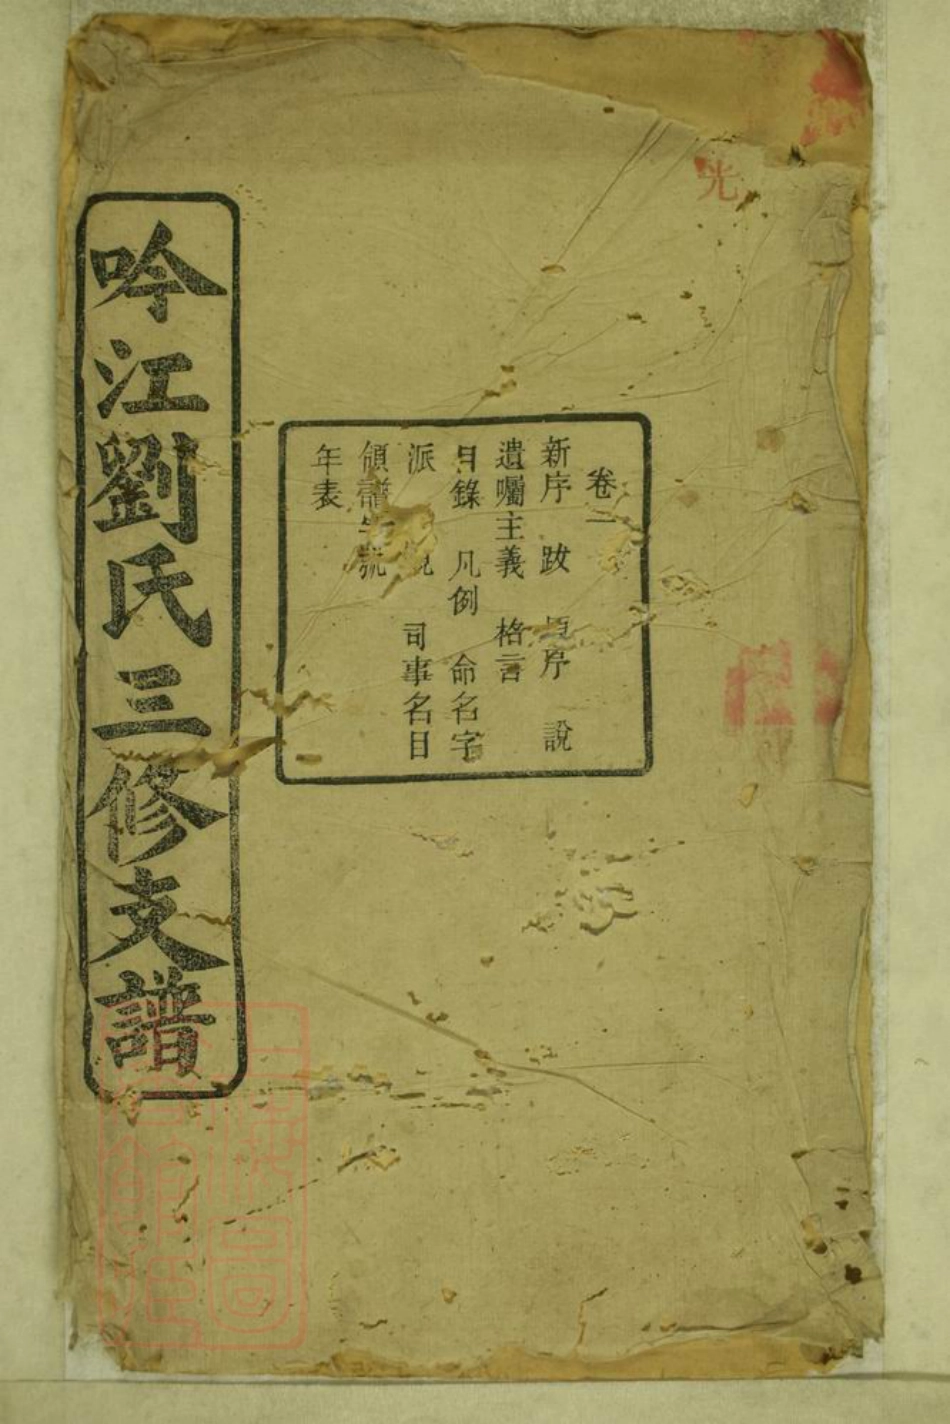 光
卷一
新序 跋 原序 說
遺囑主義 格言
目錄 凡例 命名字
派 司事名目
領譜字號
年表
吟江劉氏三修支譜